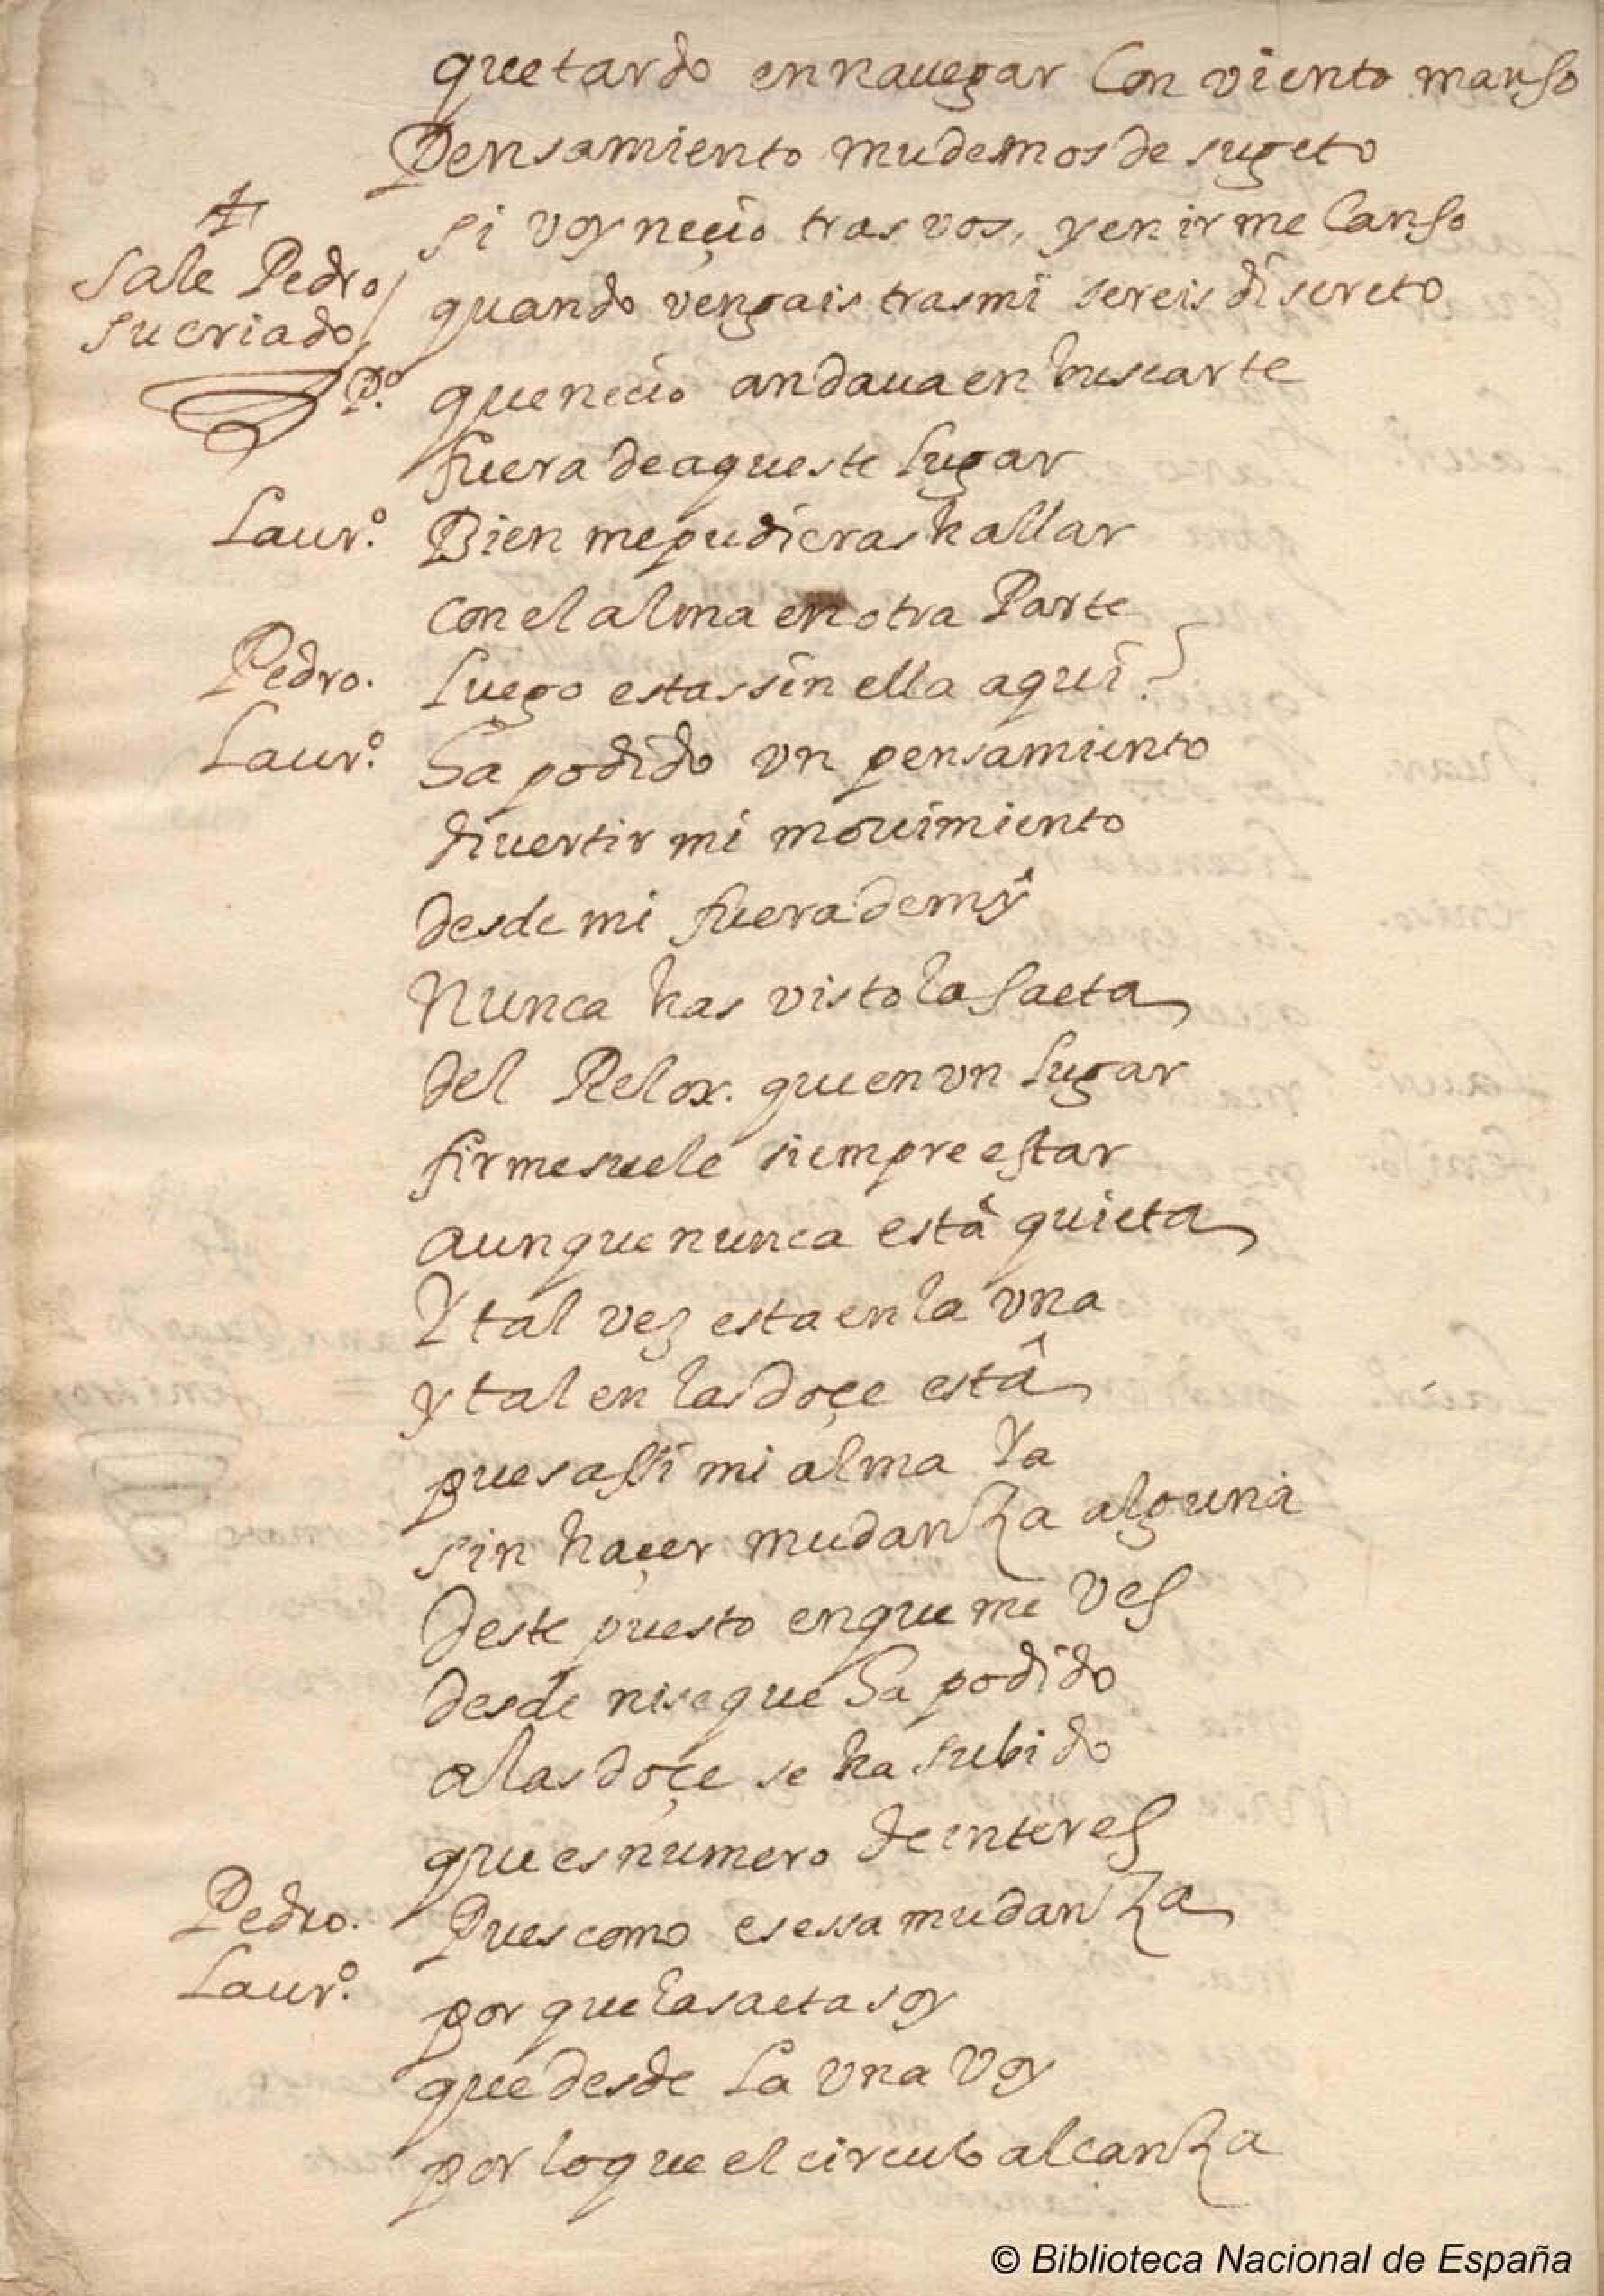 que tardo en nauegar Con viento manso
Pensamiento mudemos de sugeto
si voy neçio tras vos, y en ir me Canso
Sale Pedro
su criado
quando vengais tras mi sereis discreto
P.º que necio andaua en buscarte
fuera de aqueste lugar
Laur.º Bien me pudieras hallar
con el alma en otra Parte
Pedro. luego estas sin ella aqui?
Laur.º Sa podido vn pensamiento
diuertir mi mouimiento
desde mi fuera de mÿ
Nunca has visto la saeta
del Relox. quen vn lugar
firme suele siempre estar
aunque nunca está quieta
Y tal vez esta en la vna
y tal en las doçe está
pues assi mi alma Ya
sin haçer mudanza alguna
deste puesto en que me Ves
desde nise que Sa podido
a las doçe se ha subido
que es numero de interes
Pedro. Pues como es essa mudanza
Laur.º por que la saeta soy
que desde La vna Voy
por lo que el circulo alcanza
© Biblioteca Nacional de España